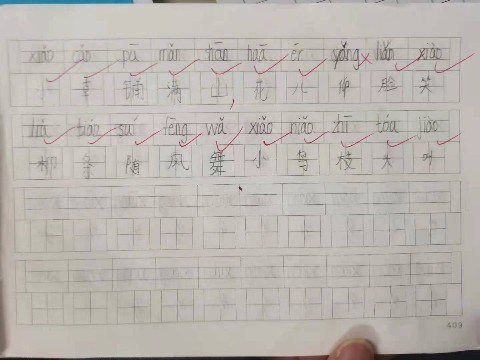 xiǎo cǎo pū mǎn shān huā ér yǎng liǎn xiào
小 草 铺 满 山 花 儿 仰 脸 笑
liǔ tiáo suí fēng wǔ xiǎo niǎo zhī tóu jiào
柳 条 随 风 舞 小 鸟 枝 头 叫